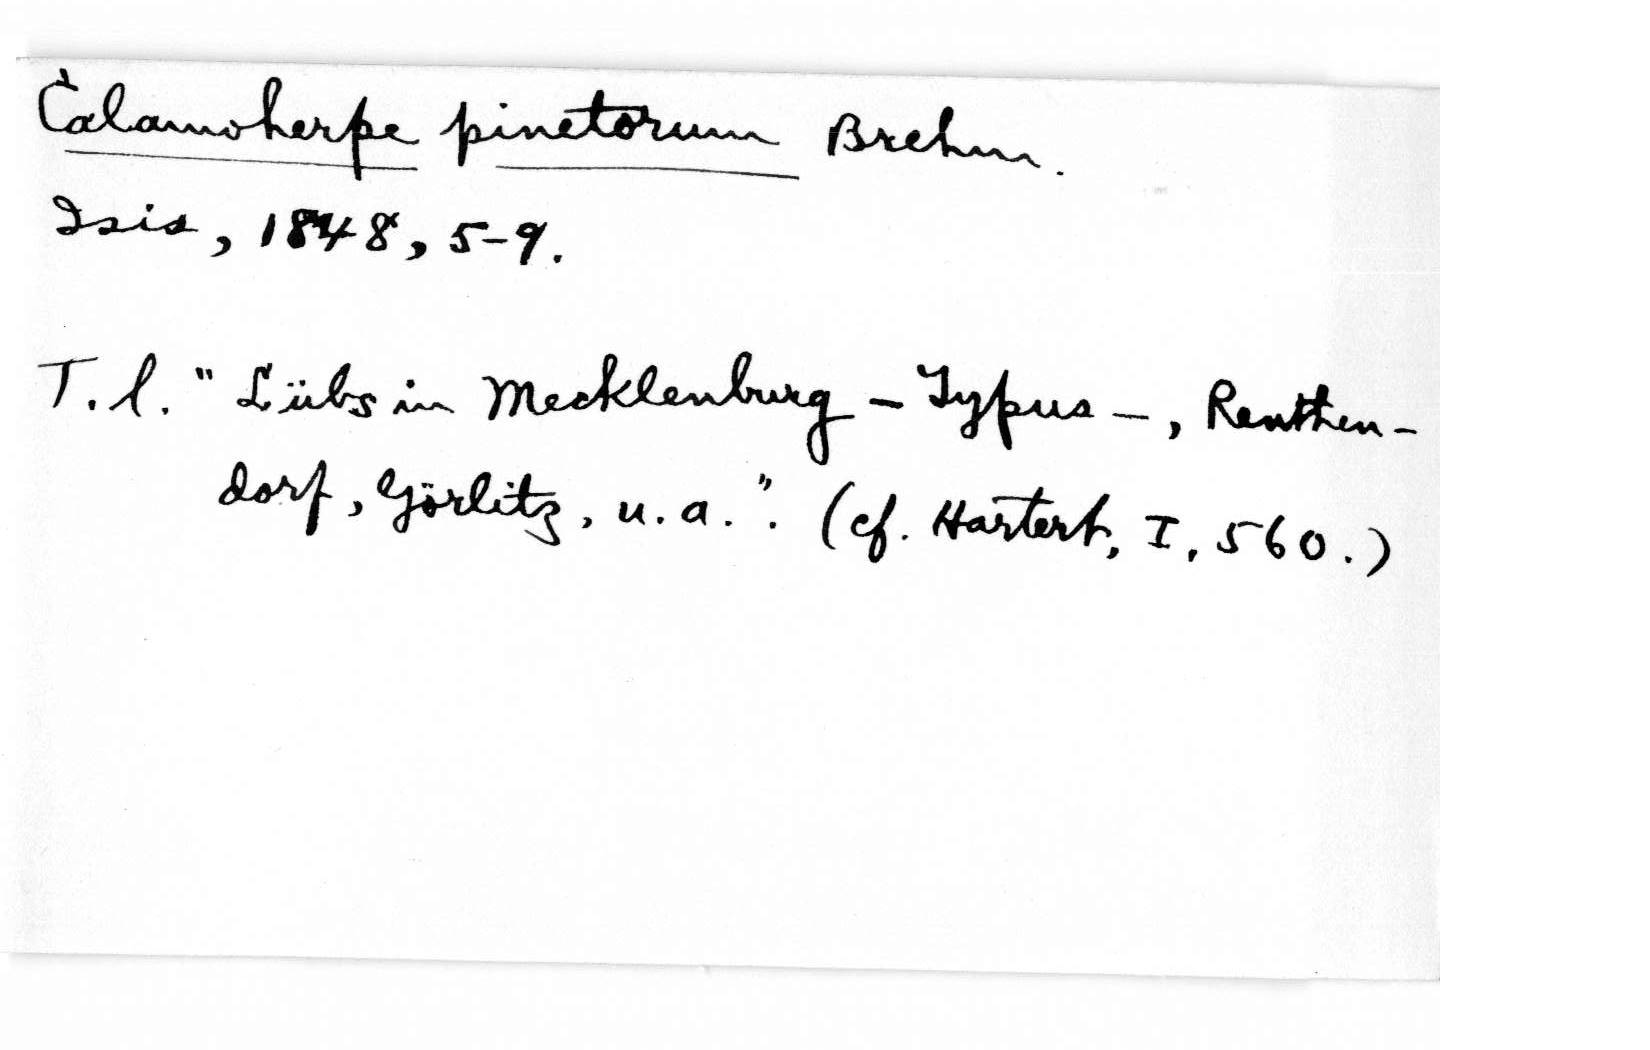 Calamoherpe pinetorum Brehm.
Isis, 1848, 5-9.
T.l. "Lübs in Mecklenburg – Typus –, Renthen-
dorf, Görlitz, u.a.". (cf. Hartert, I, 560.)